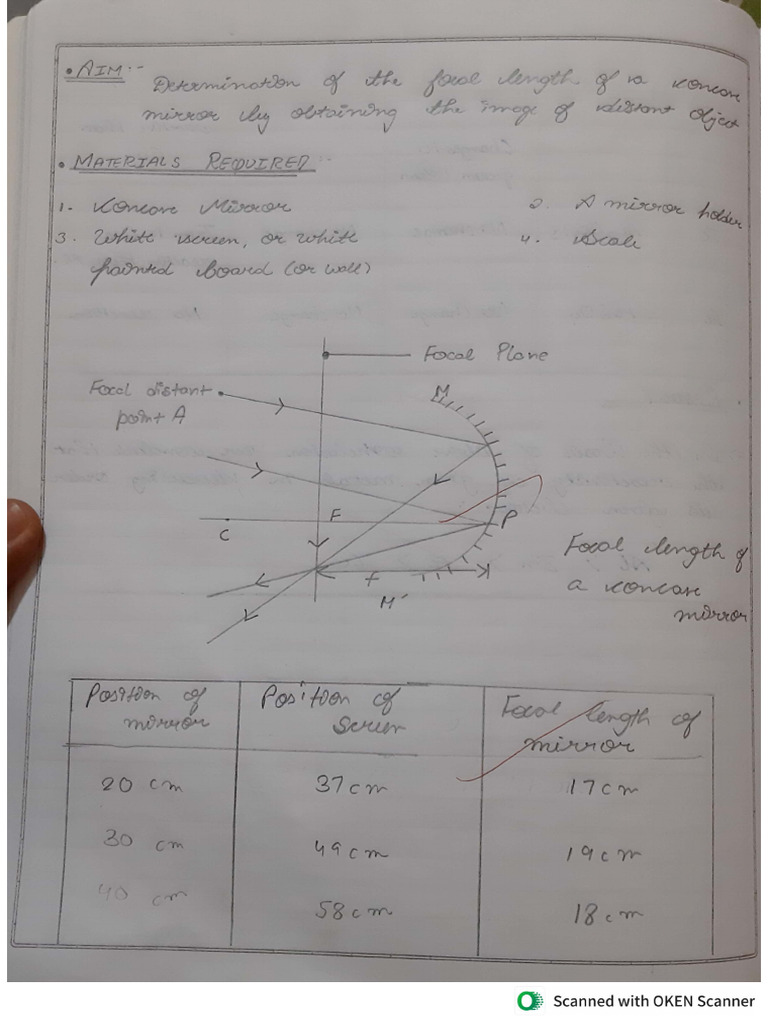 • AIM:-
Determination of the focal length of a concave
mirror by obtaining the image of distant object
• MATERIALS REQUIRED:-
1. Concave Mirror
2. A mirror holder
3. White screen, or white
painted board (or wall)
4. Scale
Focal Plane
Focal distant
point A
M
F
P
C
f
M'
Focal length of
a concave
mirror
Position of
mirror
Position of
Screen
Focal length of
mirror
20 cm
37 cm
17 cm
30 cm
49 cm
19 cm
40 cm
58 cm
18 cm
Scanned with OKEN Scanner